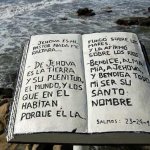 JEHOVA ES MI
PASTOR NADA ME
FALTARA.
- DE JEHOVA
ES LA TIERRA
Y SU PLENITUD,
EL MUNDO, Y LOS
QUE EN EL
HABITAN
PORQUE EL LA
FUNDO SOBRE LOS
MARES,
Y LA AFIRMO
SOBRE LOS RIOS.
- BENDICE, ALMA
MIA, A JEHOVA,
Y BENDIGA TODO
MI SER SU
SANTO
NOMBRE
SALMOS: 23-24-